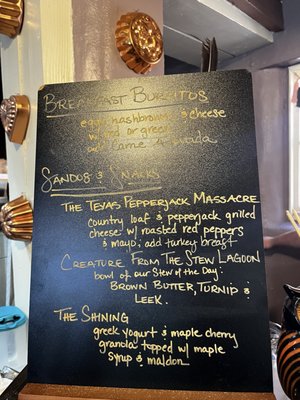 BREAKFAST BURRITOS
egg, hashbrown, & cheese
w/ red or green
add carne adovada
SANDOS & SNACKS
THE TEXAS PEPPERJACK MASSACRE
country loaf & pepperjack grilled
cheese w/ roasted red peppers
& mayo. add turkey breast
CREATURE FROM THE STEW LAGOON
bowl of our Stew of the Day:
BROWN BUTTER, TURNIP &
LEEK.
THE SHINING
greek yogurt & maple cherry
granola topped w/ maple
syrup & maldon